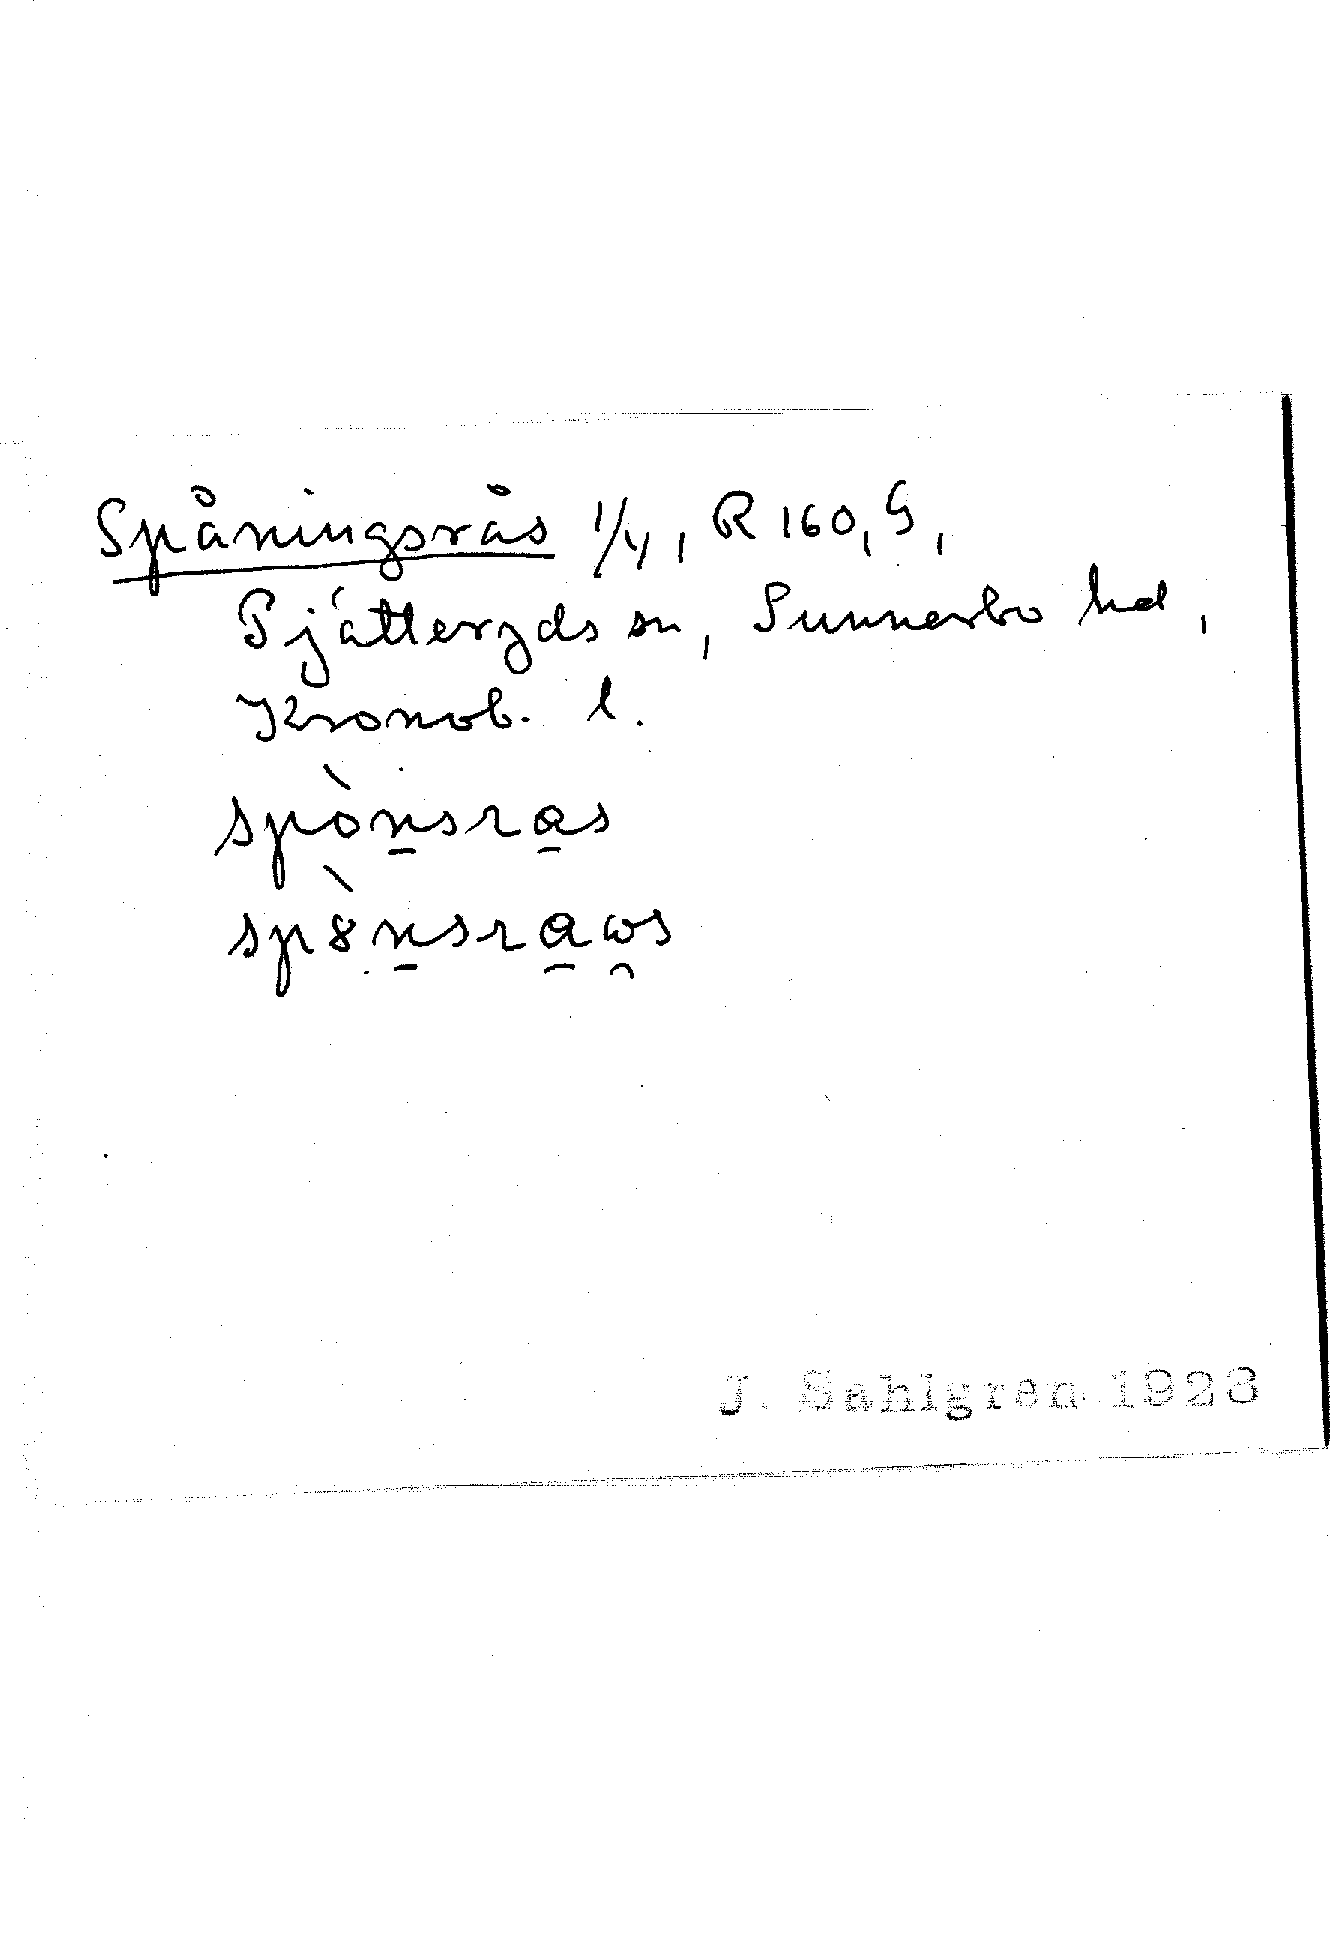 Spåningsrås 1/4, R 160, G,
Pjätteryds sn, Sunnerbo hd,
Kronob. l.
spònsras
spònsraωs
J. Sahlgren 1923